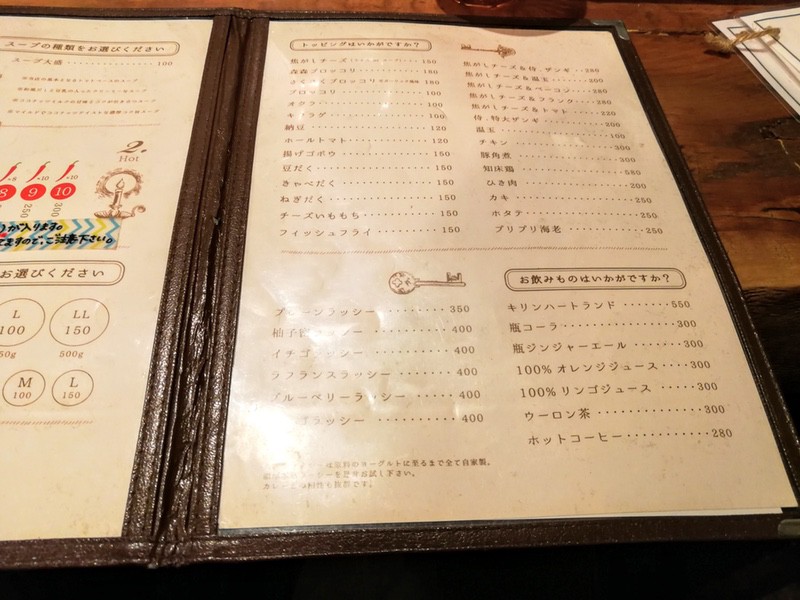 スープの種類をお選びください
スープ大盛 100
2.
Hot
8 9 10
250
300
が入ります。
ますので、ご注意下さい。
お選びください
L 100
LL 150
500g
M 100
L 150
トッピングはいかがですか?
焦がしチーズ 150
森森ブロッコリ 180
さくさくブロッコリ 180
ブロッコリ 100
オクラ 100
キクラゲ 100
納豆 120
ホールトマト 120
揚げゴボウ 150
豆だく 150
きゃべだく 150
ねぎだく 150
チーズいももち 150
フィッシュフライ 150
焦がしチーズ&侍.ザンギ 280
焦がしチーズ&温玉 200
焦がしチーズ&ベーコン 300
焦がしチーズ&フランク 280
焦がしチーズ&トマト 220
侍.特大ザンギ 200
温玉 100
チキン 300
豚角煮 300
知床鶏 580
ひき肉 200
カキ 250
ホタテ 250
プリプリ海老 250
プレーンラッシー 350
柚子 ラッシー 400
イチゴラッシー 400
ラフランスラッシー 400
ブルーベリーラッシー 400
ラッシー 400
ヨーグルトに至るまで全て自家製。
お試し下さい。
お飲みものはいかがですか?
キリンハートランド 550
瓶コーラ 300
瓶ジンジャーエール 300
100% オレンジジュース 300
100% リンゴジュース 300
ウーロン茶 300
ホットコーヒー 280